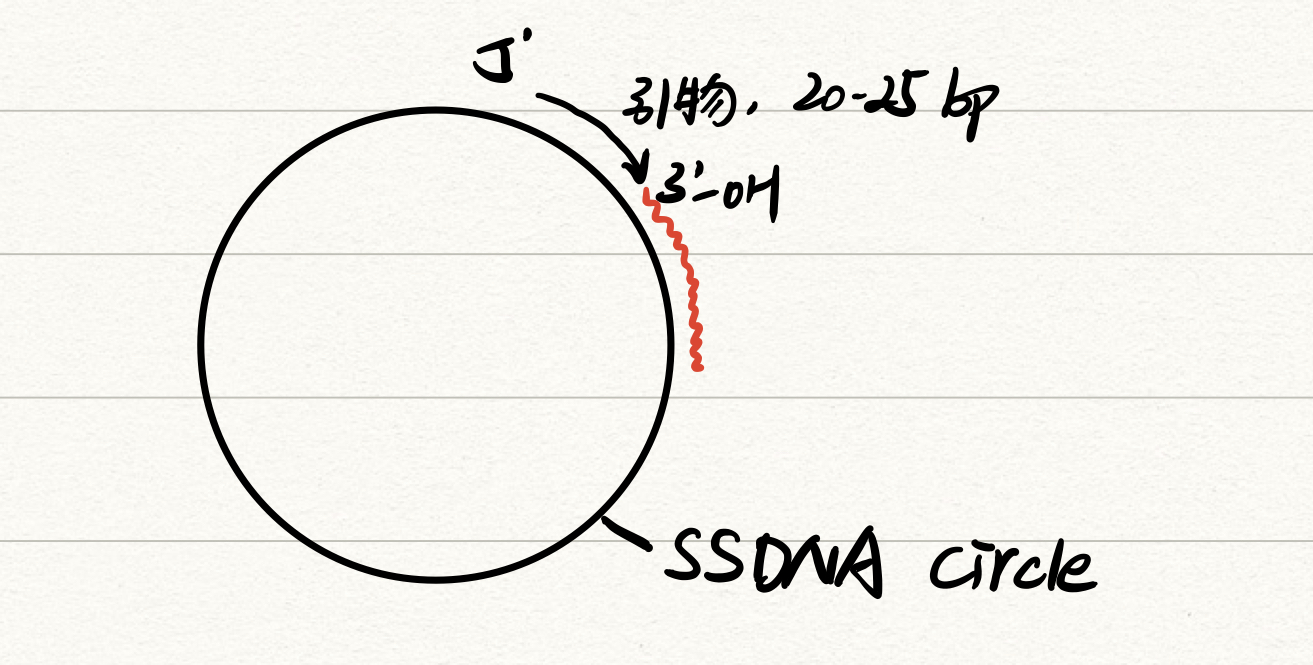 5'
引物, 20-25 bp
3'-OH
SSDNA circle